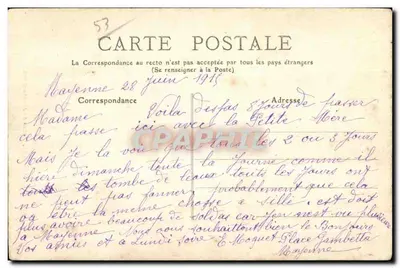 53
CARTE POSTALE
La Correspondance au recto n'est pas acceptée par tous les pays étrangers
(Se renseigner à la Poste)
Mayenne 28 Juin 1915
Correspondance
Adresse
Madame Voila desjas 8 Jours de passer
cela passe ici avec la Petite Mère
Mais Je la voie que tous les 2 ou 3 Jours
hière dimanche toute la Journe comme il
tombe de leaux touts les Jours ont
ne peut pas fanner probablement que cela
la même chosse a sille est doit
plus avoire beaucoup de soldas car
a Mayenne Nous vous souhaittont bien le Bonjoure
Vos amies et a Lundi soire E Moquet Place Gambetta
Mayenne